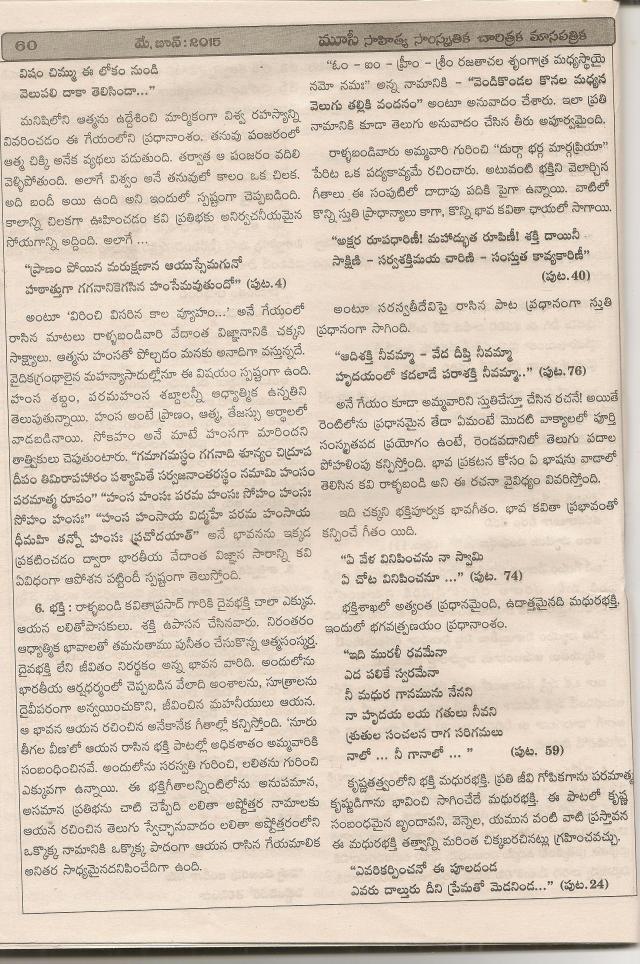 60
మే, జూన్ : 2015
మూసీ సాహిత్య సాంస్కృతిక చారిత్రక మాసపత్రిక
విషం చిమ్ము ఈ లోకం నుండి
వెలుపలి దాకా తెలిసిందా..."
మనిషిలోని ఆత్మను ఉద్దేశించి మార్మికంగా విశ్వ రహస్యాన్ని
వివరించడం ఈ గేయంలోని ప్రధానాంశం. తనువు పంజరంలో
ఆత్మ చిక్కి అనేక వ్యథలు పడుతుంది. తర్వాత ఆ పంజరం వదిలి
వెళ్ళిపోతుంది. అలాగే విశ్వం అనే తనువులో కాలం ఒక చిలక.
అది బందీ అయి ఉంది అని ఇందులో స్పష్టంగా చెప్పబడింది.
కాలాన్ని చిలకగా ఊహించడం కవి ప్రతిభకు అనిర్వచనీయమైన
సోయగాన్ని అద్దింది. అలాగే ...
"ప్రాణం పోయిన మరుక్షణాన ఆయుస్సేమగునో
హఠాత్తుగా గగనానికెగసిన హంసేమవుతుందో" (పుట.4)
అంటూ 'విరించి విసరిన కాల వ్యూహం...' అనే గేయంలో
రాసిన మాటలు రాళ్ళబండివారి వేదాంత విజ్ఞానానికి చక్కని
సాక్ష్యాలు. ఆత్మను హంసతో పోల్చడం మనకు అనాదిగా వస్తున్నదే.
వైదికగ్రంథాలైన మహన్యాసాదుల్లోనూ ఈ విషయం స్పష్టంగా ఉంది.
హంస శబ్దం, పరమహంస శబ్దాలన్నీ ఆధ్యాత్మిక ఉన్నతిని
తెలుపుతున్నాయి. హంస అంటే ప్రాణం, ఆత్మ, తేజస్సు అర్థాలలో
వాడబడినాయి. సోకహం అనే మాటే హంసగా మారిందని
తాత్త్వికులు చెపుతుంటారు. "గమాగమస్థం గగనాది శూన్యం చిద్రూప
దీపం తిమిరాపహారం పశ్యామితే సర్వజనాంతరస్థం నమామి హంసం
పరమాత్మ రూపం" "హంస హంసః పరమ హంసః సోహం హంసః
సోహం హంసః" "హంస హంసాయ విద్మహే పరమ హంసాయ
ధీమహి తన్నో హంసః ప్రచోదయాత్" అనే భావనను ఇక్కడ
ప్రకటించడం ద్వారా భారతీయ వేదాంత విజ్ఞాన సారాన్ని కవి
ఏవిధంగా ఆపోశన పట్టిందీ స్పష్టంగా తెలుస్తోంది.
6. భక్తి : రాళ్ళబండి కవితాప్రసాద్ గారికి దైవభక్తి చాలా ఎక్కువ.
ఆయన లలితోపాసకులు. శక్తి ఉపాసన చేసినవారు. నిరంతరం
ఆధ్యాత్మిక భావాలతో తమనుతాము పునీతం చేసుకొన్న ఆత్మసంస్కర్త.
దైవభక్తి లేని జీవితం నిరర్థకం అన్న భావన వారిది. అందులోను
భారతీయ ఆర్షధర్మంలో చెప్పబడిన వేలాది అంశాలను, సూత్రాలను
దైవీపరంగా అన్వయించుకొని, జీవించిన మహనీయులు ఆయన.
ఆ భావన ఆయన రచించిన అనేకానేక గీతాల్లో కన్పిస్తోంది. 'నూరు
తీగల వీణ'లో ఆయన రాసిన భక్తి పాటల్లో అధికశాతం అమ్మవారికి
సంబంధించినవే. అందులోను సరస్వతి గురించి, లలితను గురించి
ఎక్కువగా ఉన్నాయి. ఈ భక్తిగీతాలన్నింటిలోను అనుపమాన,
అసమాన ప్రతిభను చాటి చెప్పేది లలితా అష్టోత్తర నామాలకు
ఆయన రచించిన తెలుగు స్వేచ్ఛానువాదం లలితా అష్టోత్తరంలోని
ఒక్కొక్క నామానికి ఒక్కొక్క పాదంగా ఆయన రాసిన గేయమాలిక
అనితర సాధ్యమైనదనిపించేదిగా ఉంది.
"ఓం - ఐం - హ్రీం - శ్రీం రజతాచల శృంగాత్ర మధ్యస్థాయై
నమో నమః" అన్న నామానికి - "వెండికొండల కొనల మధ్యన
వెలుగు తల్లికి వందనం" అంటూ అనువాదం చేశారు. ఇలా ప్రతి
నామానికి కూడా తెలుగు అనువాదం చేసిన తీరు అపూర్వమైంది.
రాళ్ళబండివారు అమ్మవారి గురించి "దుర్గా భర్గ మార్గప్రియా"
పేరిట ఒక పద్యకావ్యమే రచించారు. అటువంటి భక్తిని వెలార్చిన
గీతాలు ఈ సంపుటిలో దాదాపు పదికి పైగా ఉన్నాయి. వాటిలో
కొన్ని స్తుతి ప్రాధాన్యాలు కాగా, కొన్ని భావ కవితా ఛాయలో సాగాయి.
"అక్షర రూపధారిణీ! మహాద్భుత రూపిణీ! శక్తి దాయినీ
సాక్షిణి - సర్వశక్తిమయ చారిణి - సంస్తుత కావ్యకారిణీ"
(పుట.40)
అంటూ సరస్వతీదేవిపై రాసిన పాట ప్రధానంగా స్తుతి
ప్రధానంగా సాగింది.
"ఆదిశక్తి నీవమ్మా - వేద దీప్తి నీవమ్మా
హృదయంలో కదలాడే పరాశక్తి నీవమ్మా.." (పుట.76)
అనే గేయం కూడా అమ్మవారిని స్తుతిచేస్తూ చేసిన రచనే! అయితే
రెంటిలోను ప్రధానమైన తేడా ఏమంటే మొదటి వాక్యాలలో పూర్తి
సంస్కృతపద ప్రయోగం ఉంటే, రెండవదానిలో తెలుగు పదాల
పోహళింపు కన్పిస్తోంది. భావ ప్రకటన కోసం ఏ భాషను వాడాలో
తెలిసిన కవి రాళ్ళబండి అని ఈ రచనా వైవిధ్యం వివరిస్తోంది.
ఇది చక్కని భక్తిపూర్వక భావగీతం. భావ కవితా ప్రభావంతో
కన్పించే గీతం యిది.
"ఏ వేళ వినిపించను నా స్వామి
ఏ చోట వినిపించనూ ..." (పుట. 74)
భక్తిశాఖలో అత్యంత ప్రధానమైంది, ఉదాత్తమైనది మధురభక్తి.
ఇందులో భగవత్ప్రణయం ప్రధానాంశం.
"ఇది మురళీ రవమేనా
ఎద పలికే స్వరమేనా
నీ మధుర గానమును నేనని
నా హృదయ లయ గతులు నీవని
శ్రుతుల సంచలన రాగ సరిగమలు
నాలో ... నీ గానాలో ... " (పుట. 59)
కృష్ణతత్త్వంలోని భక్తి మధురభక్తి. ప్రతి జీవి గోపికగాను పరమాత్మ
కృష్ణుడిగాను భావించి సాగించేదే మధురభక్తి. ఈ పాటలో కృష్ణ
సంబంధమైన బృందావని, వెన్నెల, యమున వంటి వాటి ప్రస్తావన
ఈ మధురభక్తి తత్త్వాన్ని మరింత చిక్కబరచినట్లు గ్రహించవచ్చు.
"ఎవరికర్పించనో ఈ పూలదండ
ఎవరు దాల్తురు దీని ప్రేమతో మెడనిండ..." (పుట.24)